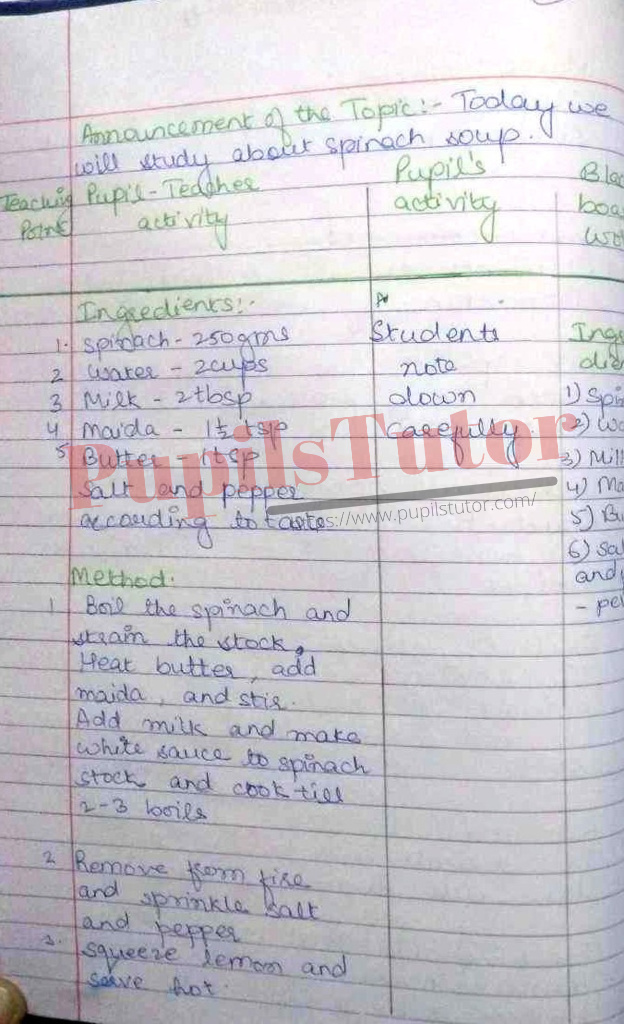 Announcement of the Topic:- Today we
will study about spinach soup.
Teaching Point
Pupil-Teacher activity
Pupil's activity
Blac
boa
wo
Ingredients:-
1. Spinach - 250gms
2 Water - 2cups
3 Milk - 2tbsp
4 Maida - 1½ tsp
5 Butter - 1tsp
Salt and pepper
according to taste
Students
note
down
carefully
Ingr
dien
1) Spin
2) Wa
3) Mil
4) Ma
5) Bu
6) Sal
and
- pe
PupilsTutor
https://www.pupilstutor.com/
Method.
1 Boil the spinach and
strain the stock.
Heat butter, add
maida, and stir.
Add milk and make
white sauce to spinach
stock and cook till
2-3 boils
2 Remove from fire
and sprinkle salt
and pepper
3. squeeze lemon and
serve hot.